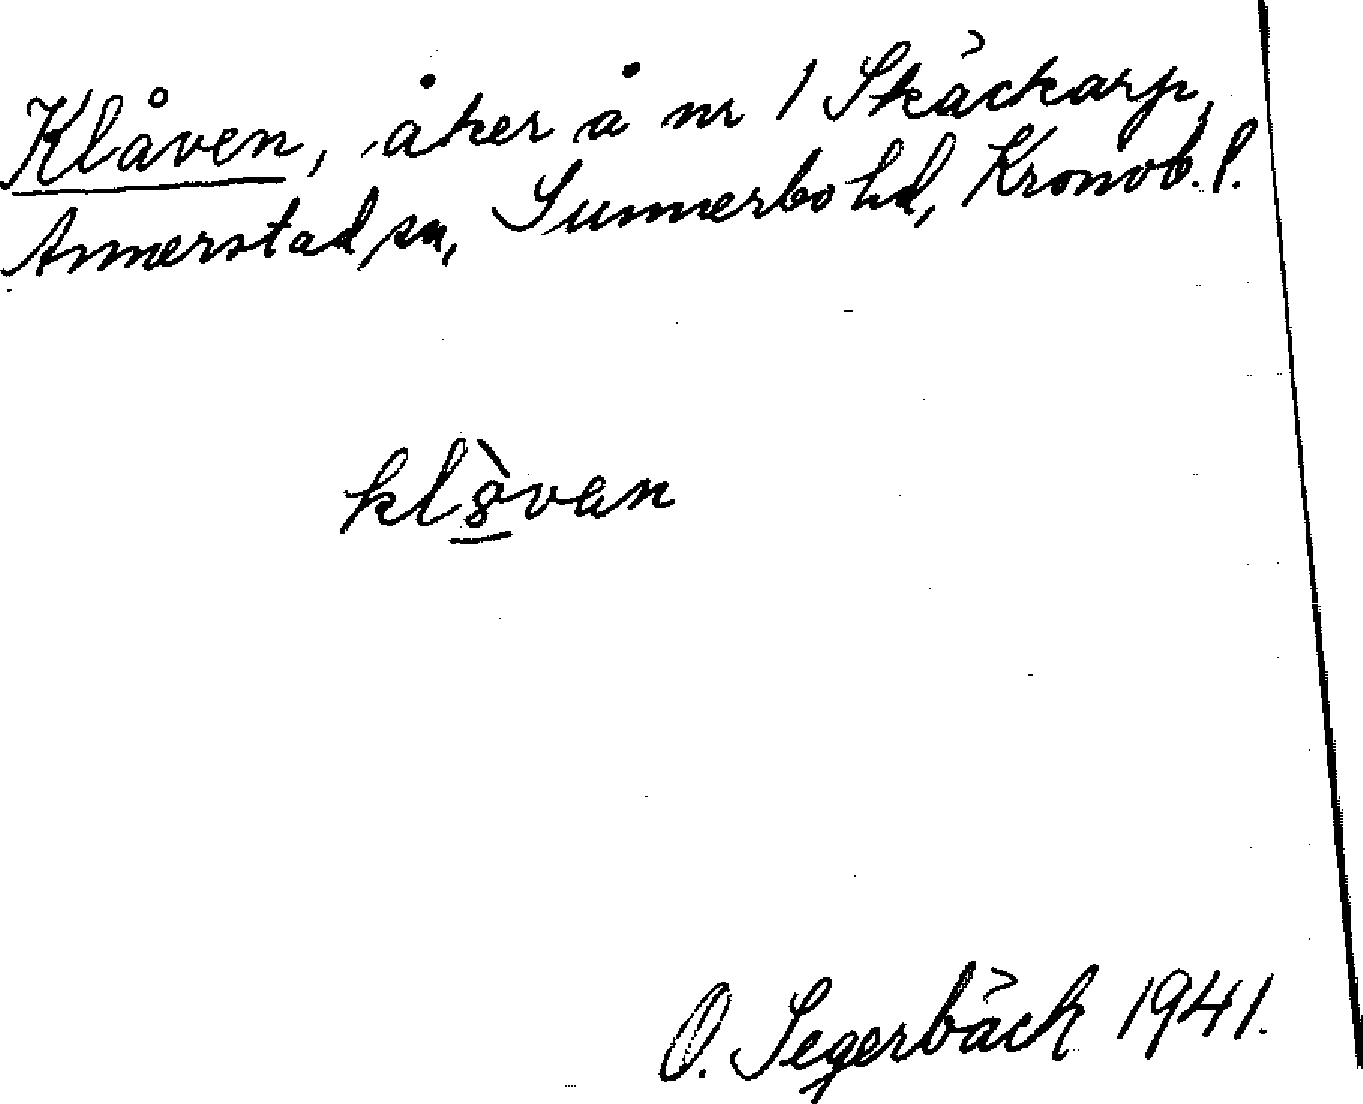 Klåven, åker å nr 1 Skäckarp,
Annerstad sn, Sunnerbo hd, Kronob. l.
kl8̲̀van
O. Segerbäck 1941.